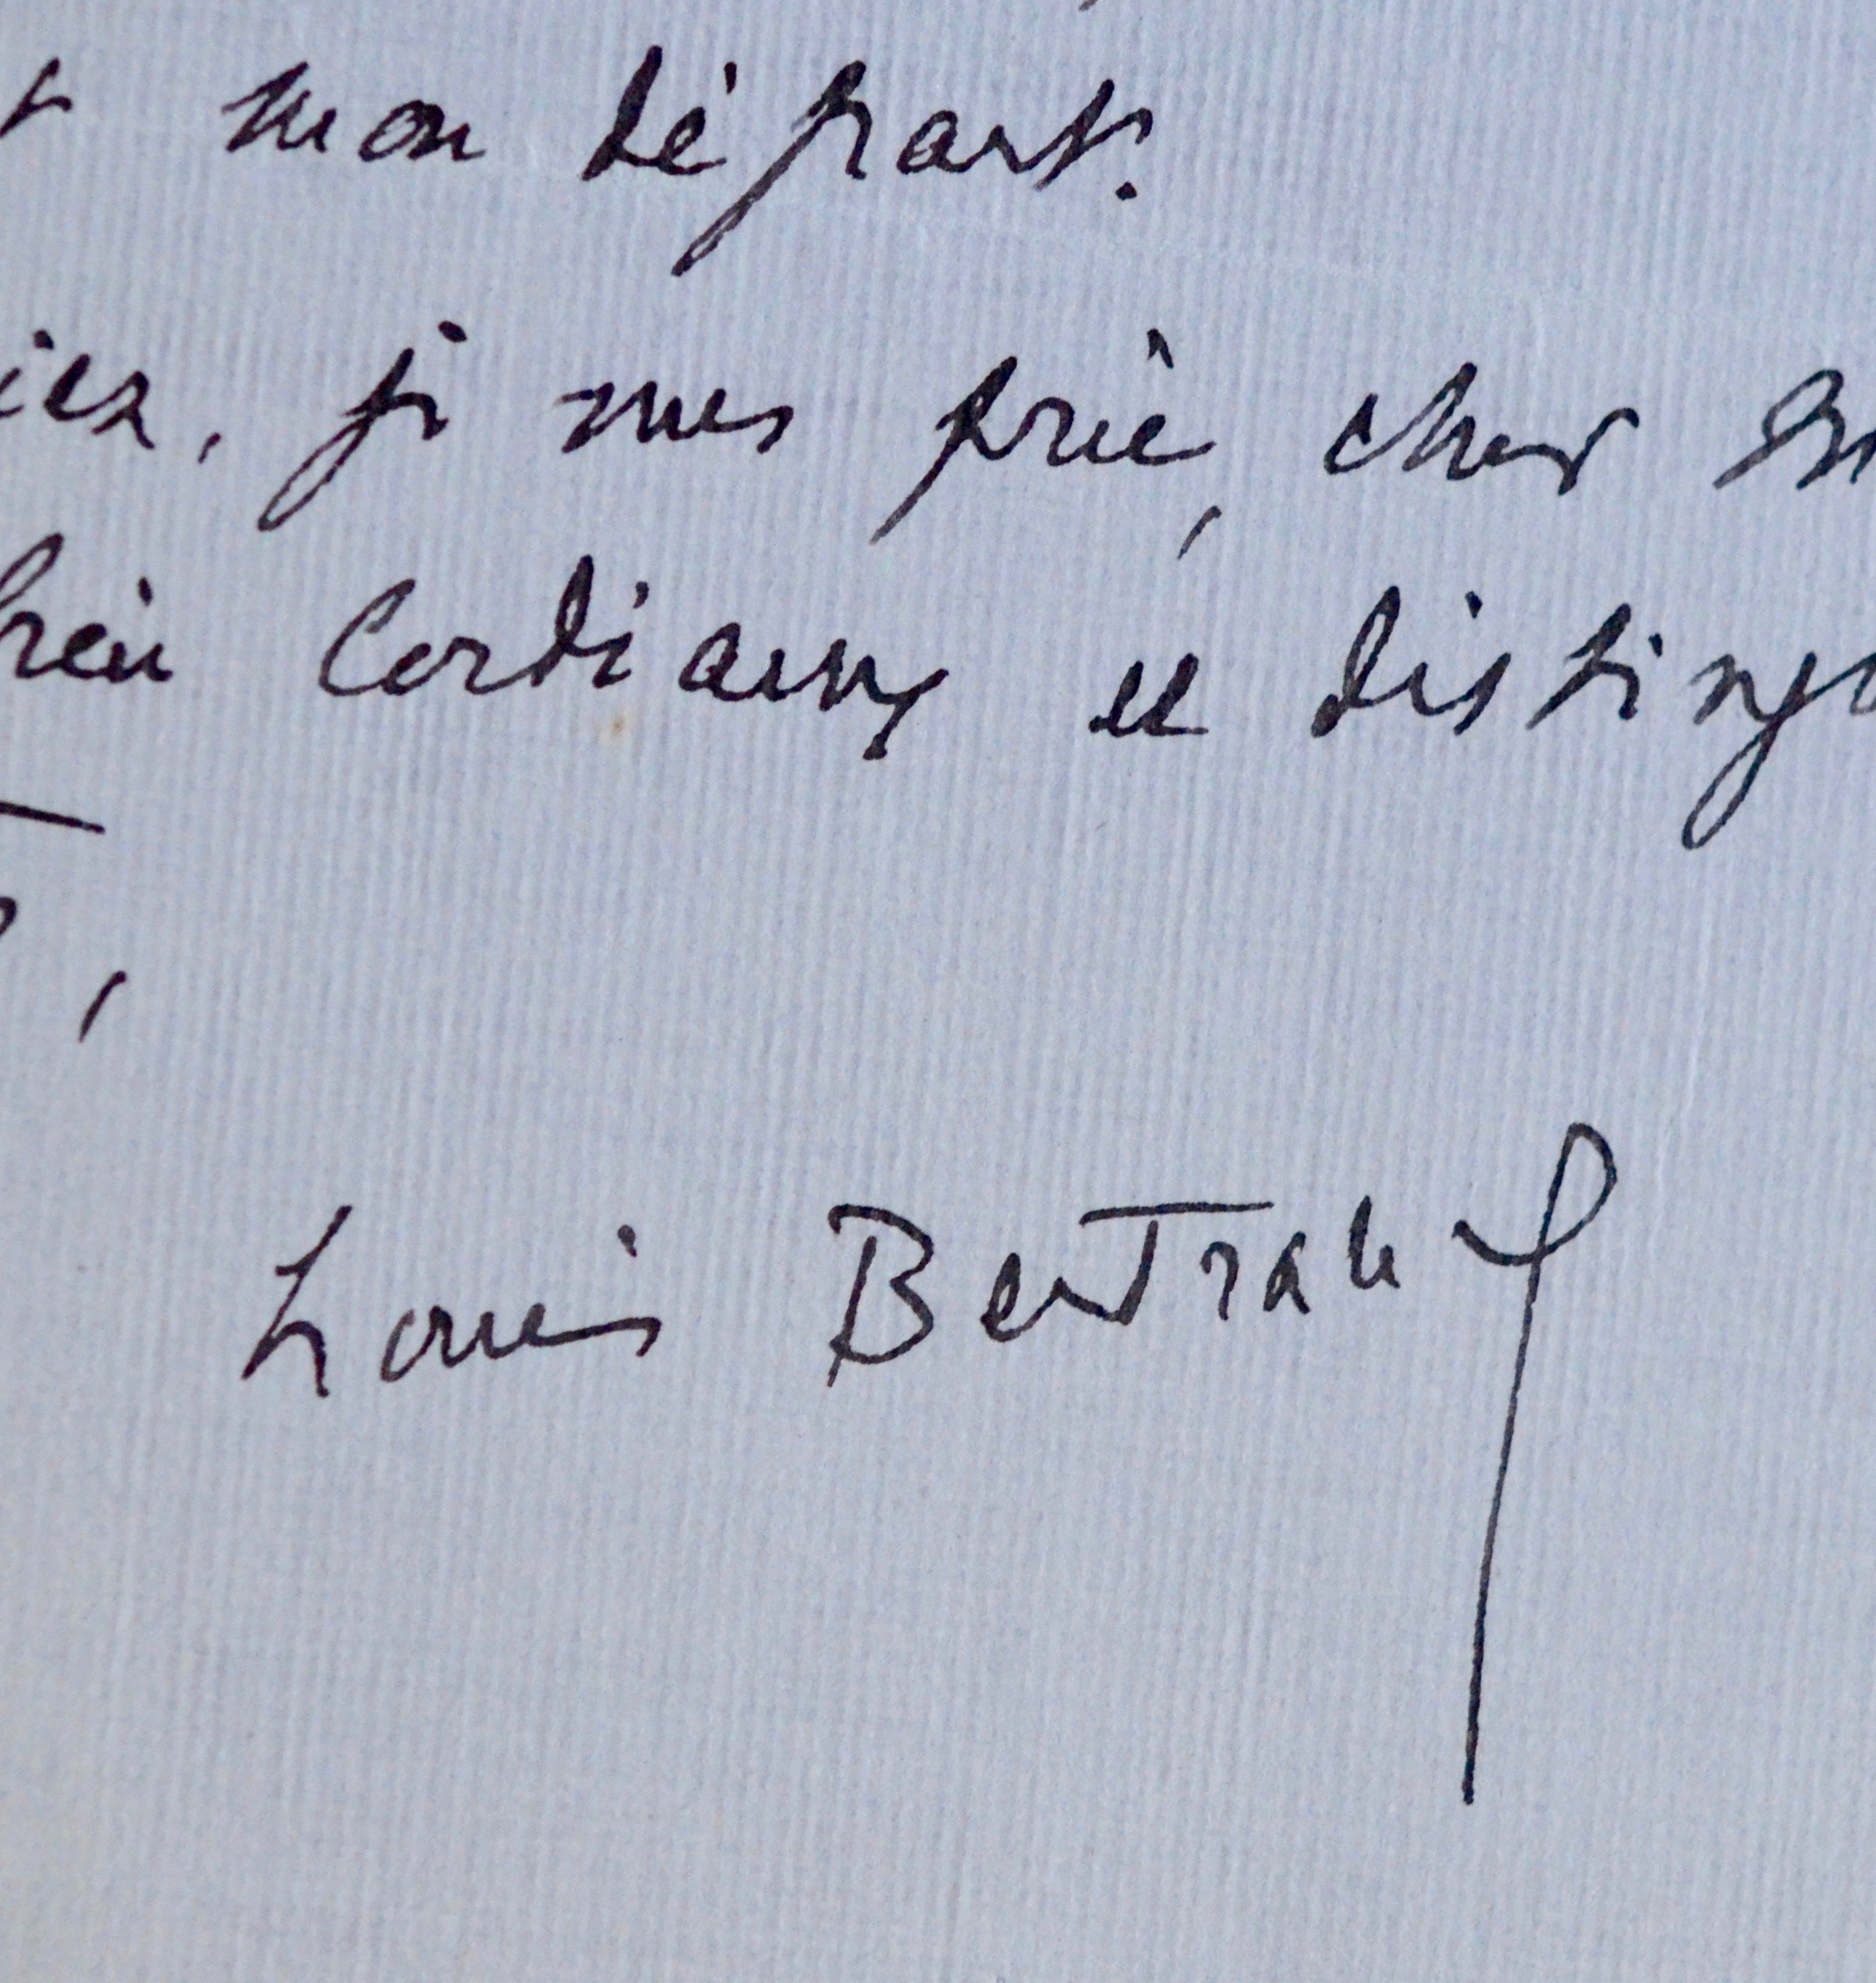 mon départ.
, je vous prie, cher
bien cordiaux et disting
,
Louis Bertrand